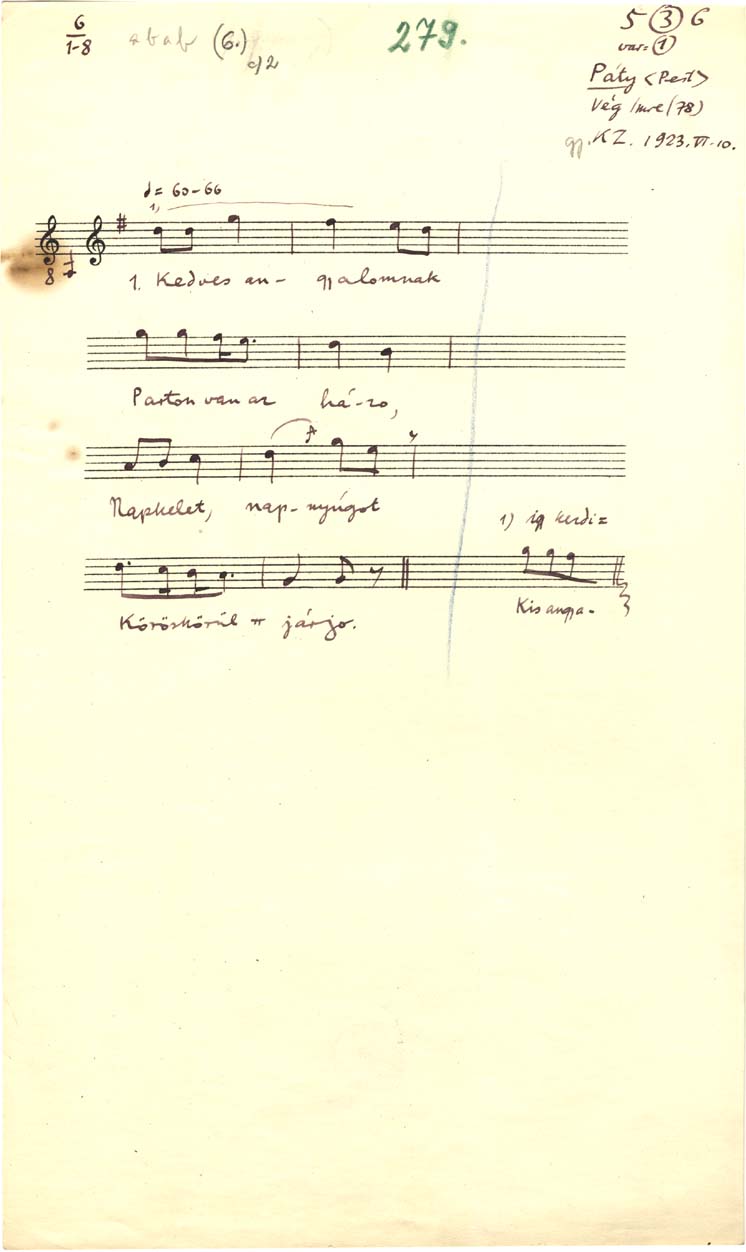 6
1-8
a b a b (6.)
279.
5 ③ 6
var: ①
Páty <Pest>
Vég Imre (78)
gy. KZ. 1923. VI. 10.
= 60-66
1)
8
1. Kedves an- gyalomnak
Parton van az há-zo,
Napkelet, nap-nyúgot
1) így kezdi=
Köröskörül járjo.
Kis angya-